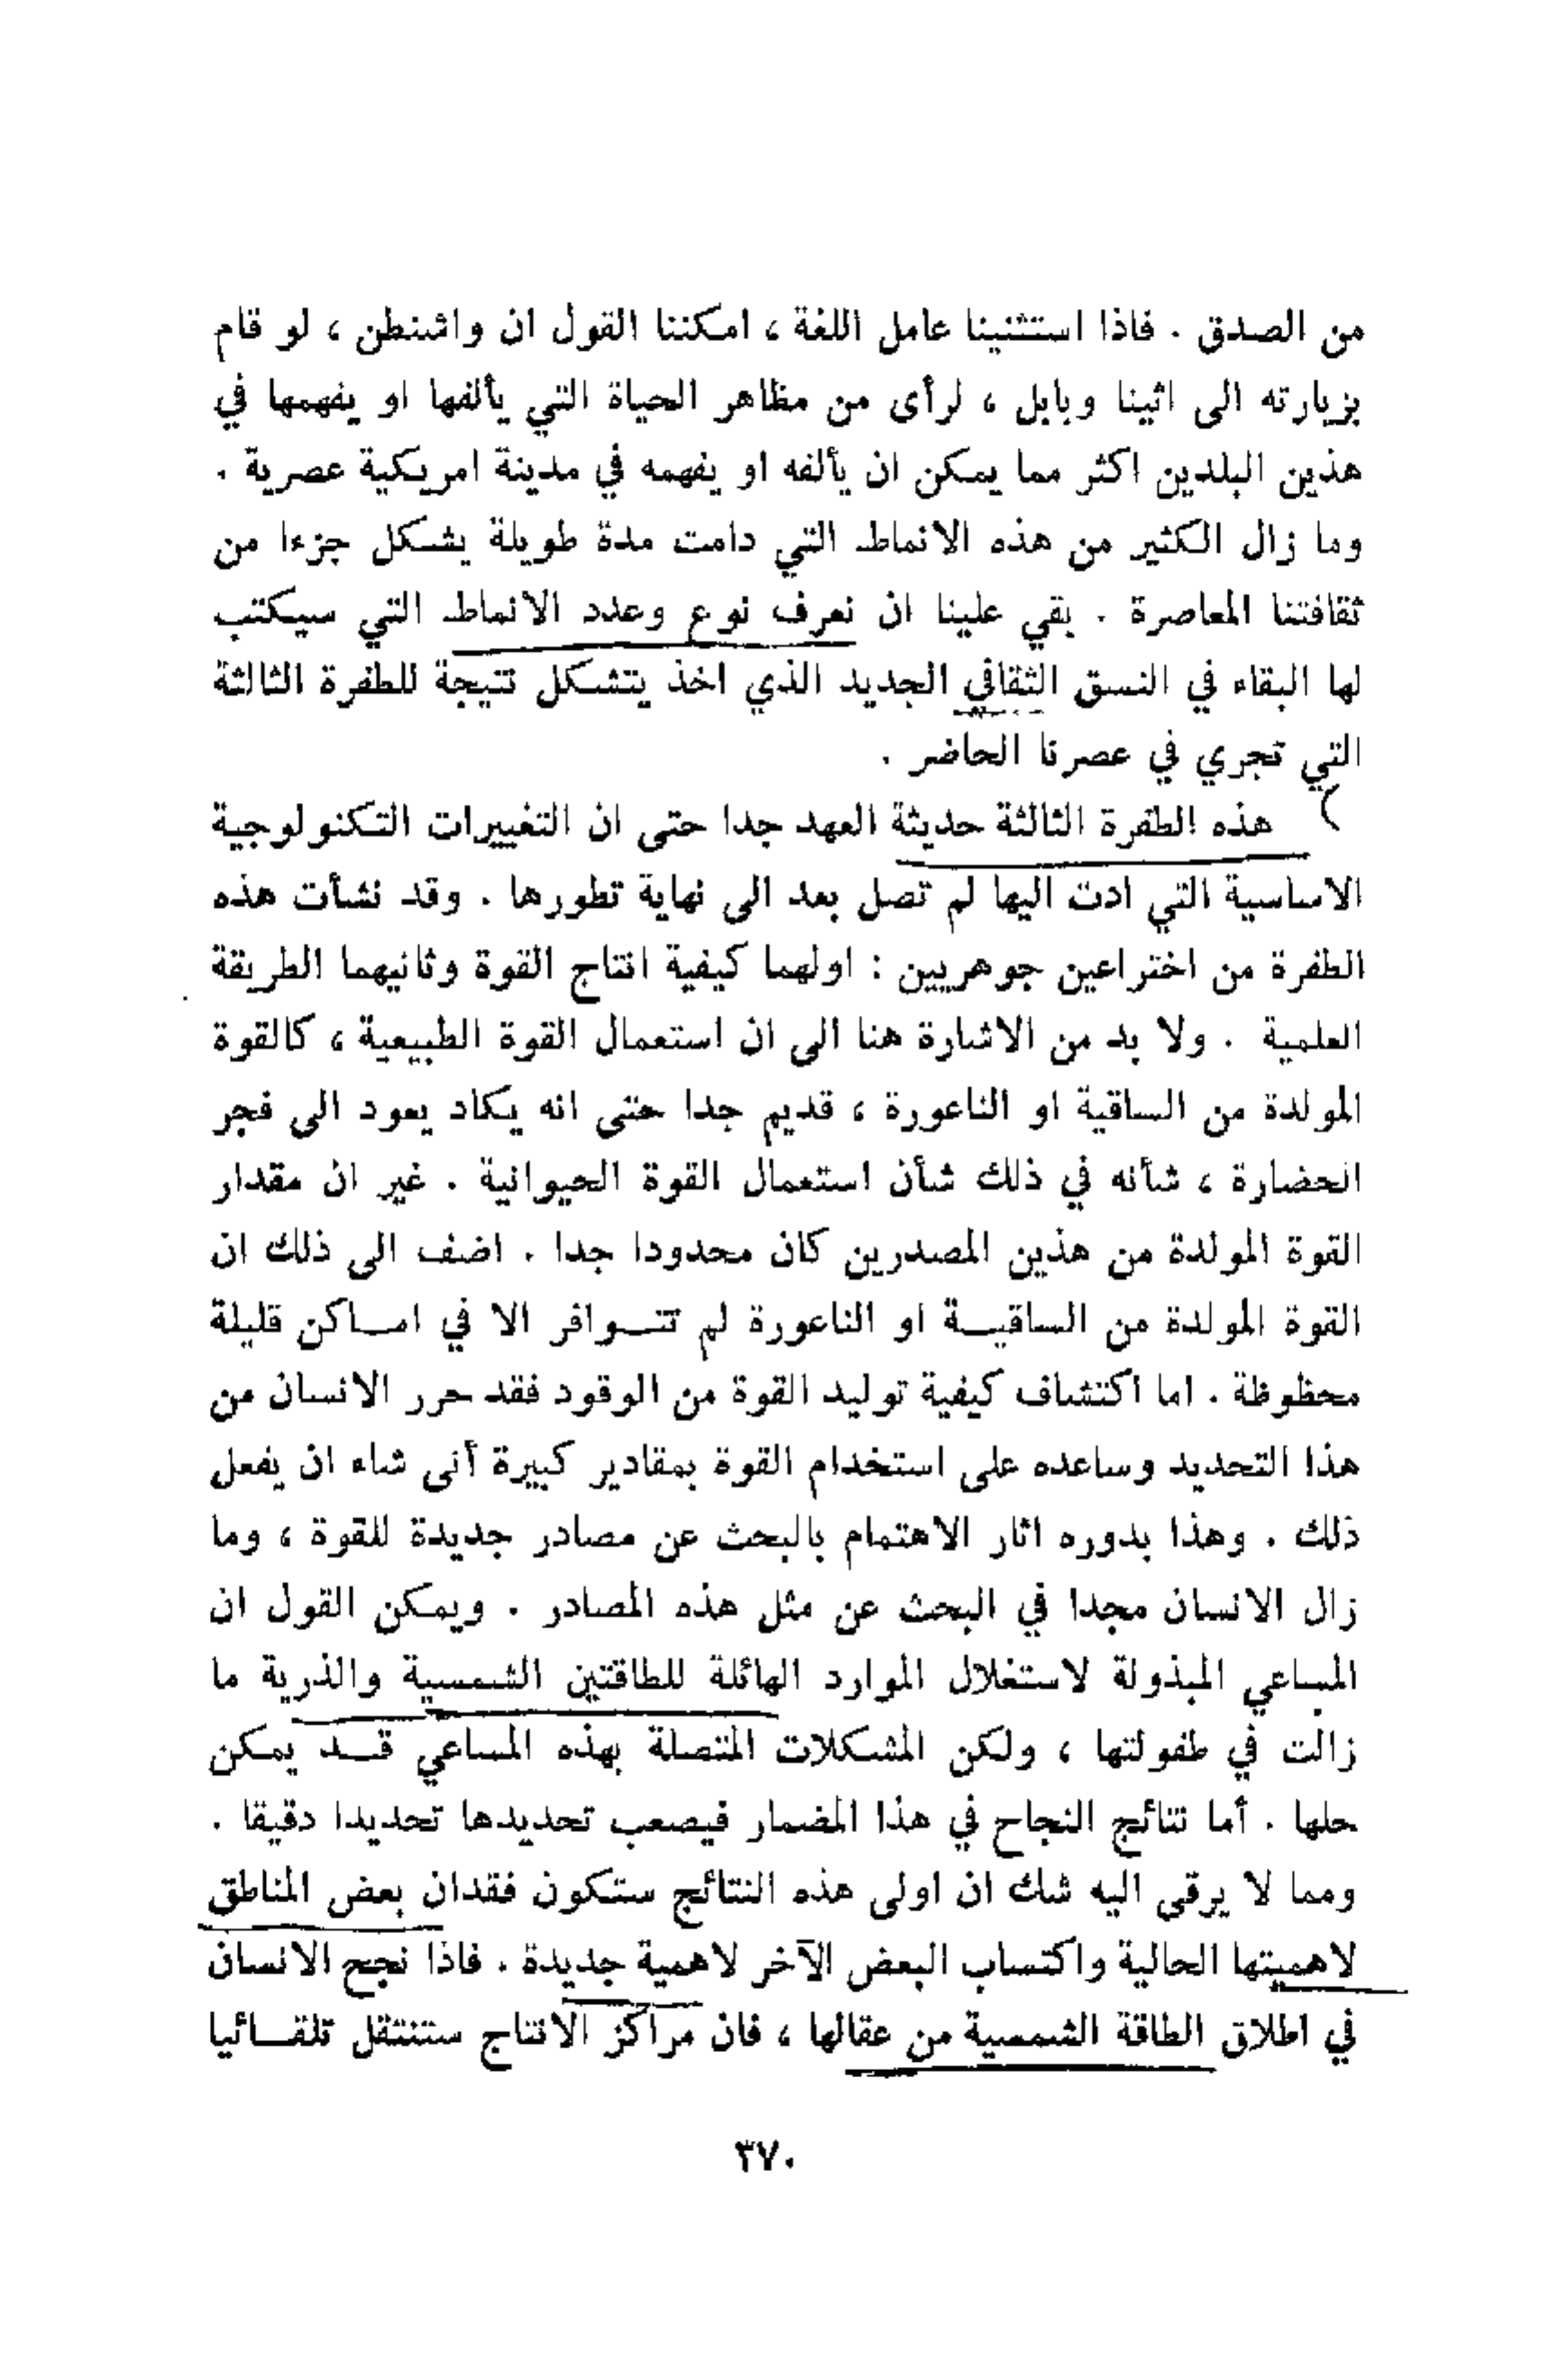 من الصدق . فاذا استثنينا عامل اللغة ، امكننا القول ان واشنطن ، لو قام
بزيارته الى اثينا وبابل ، لرأى من مظاهر الحياة التي يألفها او يفهمها في
هذين البلدين اكثر مما يمكن ان يألفه او يفهمه في مدينة امريكية عصرية .
وما زال الكثير من هذه الانماط التي دامت مدة طويلة يشكل جزءا من
ثقافتنا المعاصرة . بقي علينا ان نعرف نوع وعدد الانماط التي سيكتب
لها البقاء في النسق الثقافي الجديد الذي اخذ يتشكل نتيجة للطفرة الثالثة
التي تجري في عصرنا الحاضر .
هذه الطفرة الثالثة حديثة العهد جدا حتى ان التغييرات التكنولوجية
الاساسية التي ادت اليها لم تصل بعد الى نهاية تطورها . وقد نشأت هذه
الطفرة من اختراعين جوهريين : اولهما كيفية انتاج القوة وثانيهما الطريقة
العلمية . ولا بد من الاشارة هنا الى ان استعمال القوة الطبيعية ، كالقوة
المولدة من الساقية او الناعورة ، قديم جدا حتى انه يكاد يعود الى فجر
الحضارة ، شأنه في ذلك شأن استعمال القوة الحيوانية . غير ان مقدار
القوة المولدة من هذين المصدرين كان محدودا جدا . اضف الى ذلك ان
القوة المولدة من الساقيـة او الناعورة لم تتـوافر الا في امـاكن قليلة
محظوظة . اما اكتشاف كيفية توليد القوة من الوقود فقد حرر الانسان من
هذا التحديد وساعده على استخدام القوة بمقادير كبيرة أنى شاء ان يفعل
ذلك . وهذا بدوره اثار الاهتمام بالبحث عن مصادر جديدة للقوة ، وما
زال الانسان مجدا في البحث عن مثل هذه المصادر . ويمكن القول ان
المساعي المبذولة لاستغلال الموارد الهائلة للطاقتين الشمسية والذرية ما
زالت في طفولتها ، ولكن المشكلات المتصلة بهذه المساعي قـد يمكن
حلها . أما نتائج النجاح في هذا المضمار فيصعب تحديدها تحديدا دقيقا .
ومما لا يرقى اليه شك ان اولى هذه النتائج ستكون فقدان بعض المناطق
لاهميتها الحالية واكتساب البعض الآخر لاهمية جديدة . فاذا نجح الانسان
في اطلاق الطاقة الشمسية من عقالها ، فان مراكز الانتاج ستنتقل تلقـائيا
٣٧٠